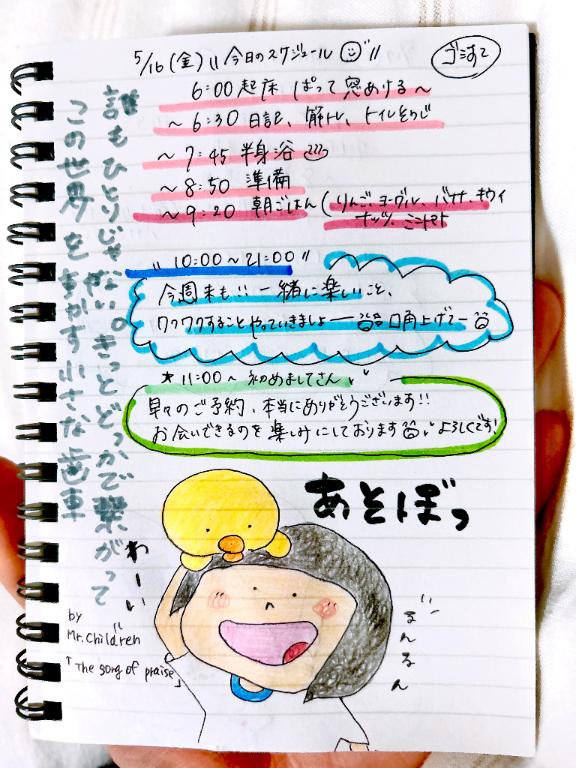 5/16(金) 〃今日のスケジュール〃
ゴミすて
6:00 起床 ぱって窓あける〜
〜6:30 日記、筋トレ、トイレそうじ
〜7:45 半身浴
〜8:50 準備
〜9:20 朝ごはん(りんご、ヨーグル、バナナ、キウイ
ナッツ、ミニトマト
〃10:00〜21:00〃
今週末も!! 一緒に楽しいこと、
ワクワクすることやっていきましょー 口角上げてー
★11:00〜 初めましてさん
早々のご予約、本当にありがとうございます!!
お会いできるのを楽しみにしております よろしくです!
誰もひとりじゃない。きっとどっかで繋がって
この世界を動かす小さな歯車
あそぼっ
わーい
まんるん
by
Mr.Children
「The song of praise」